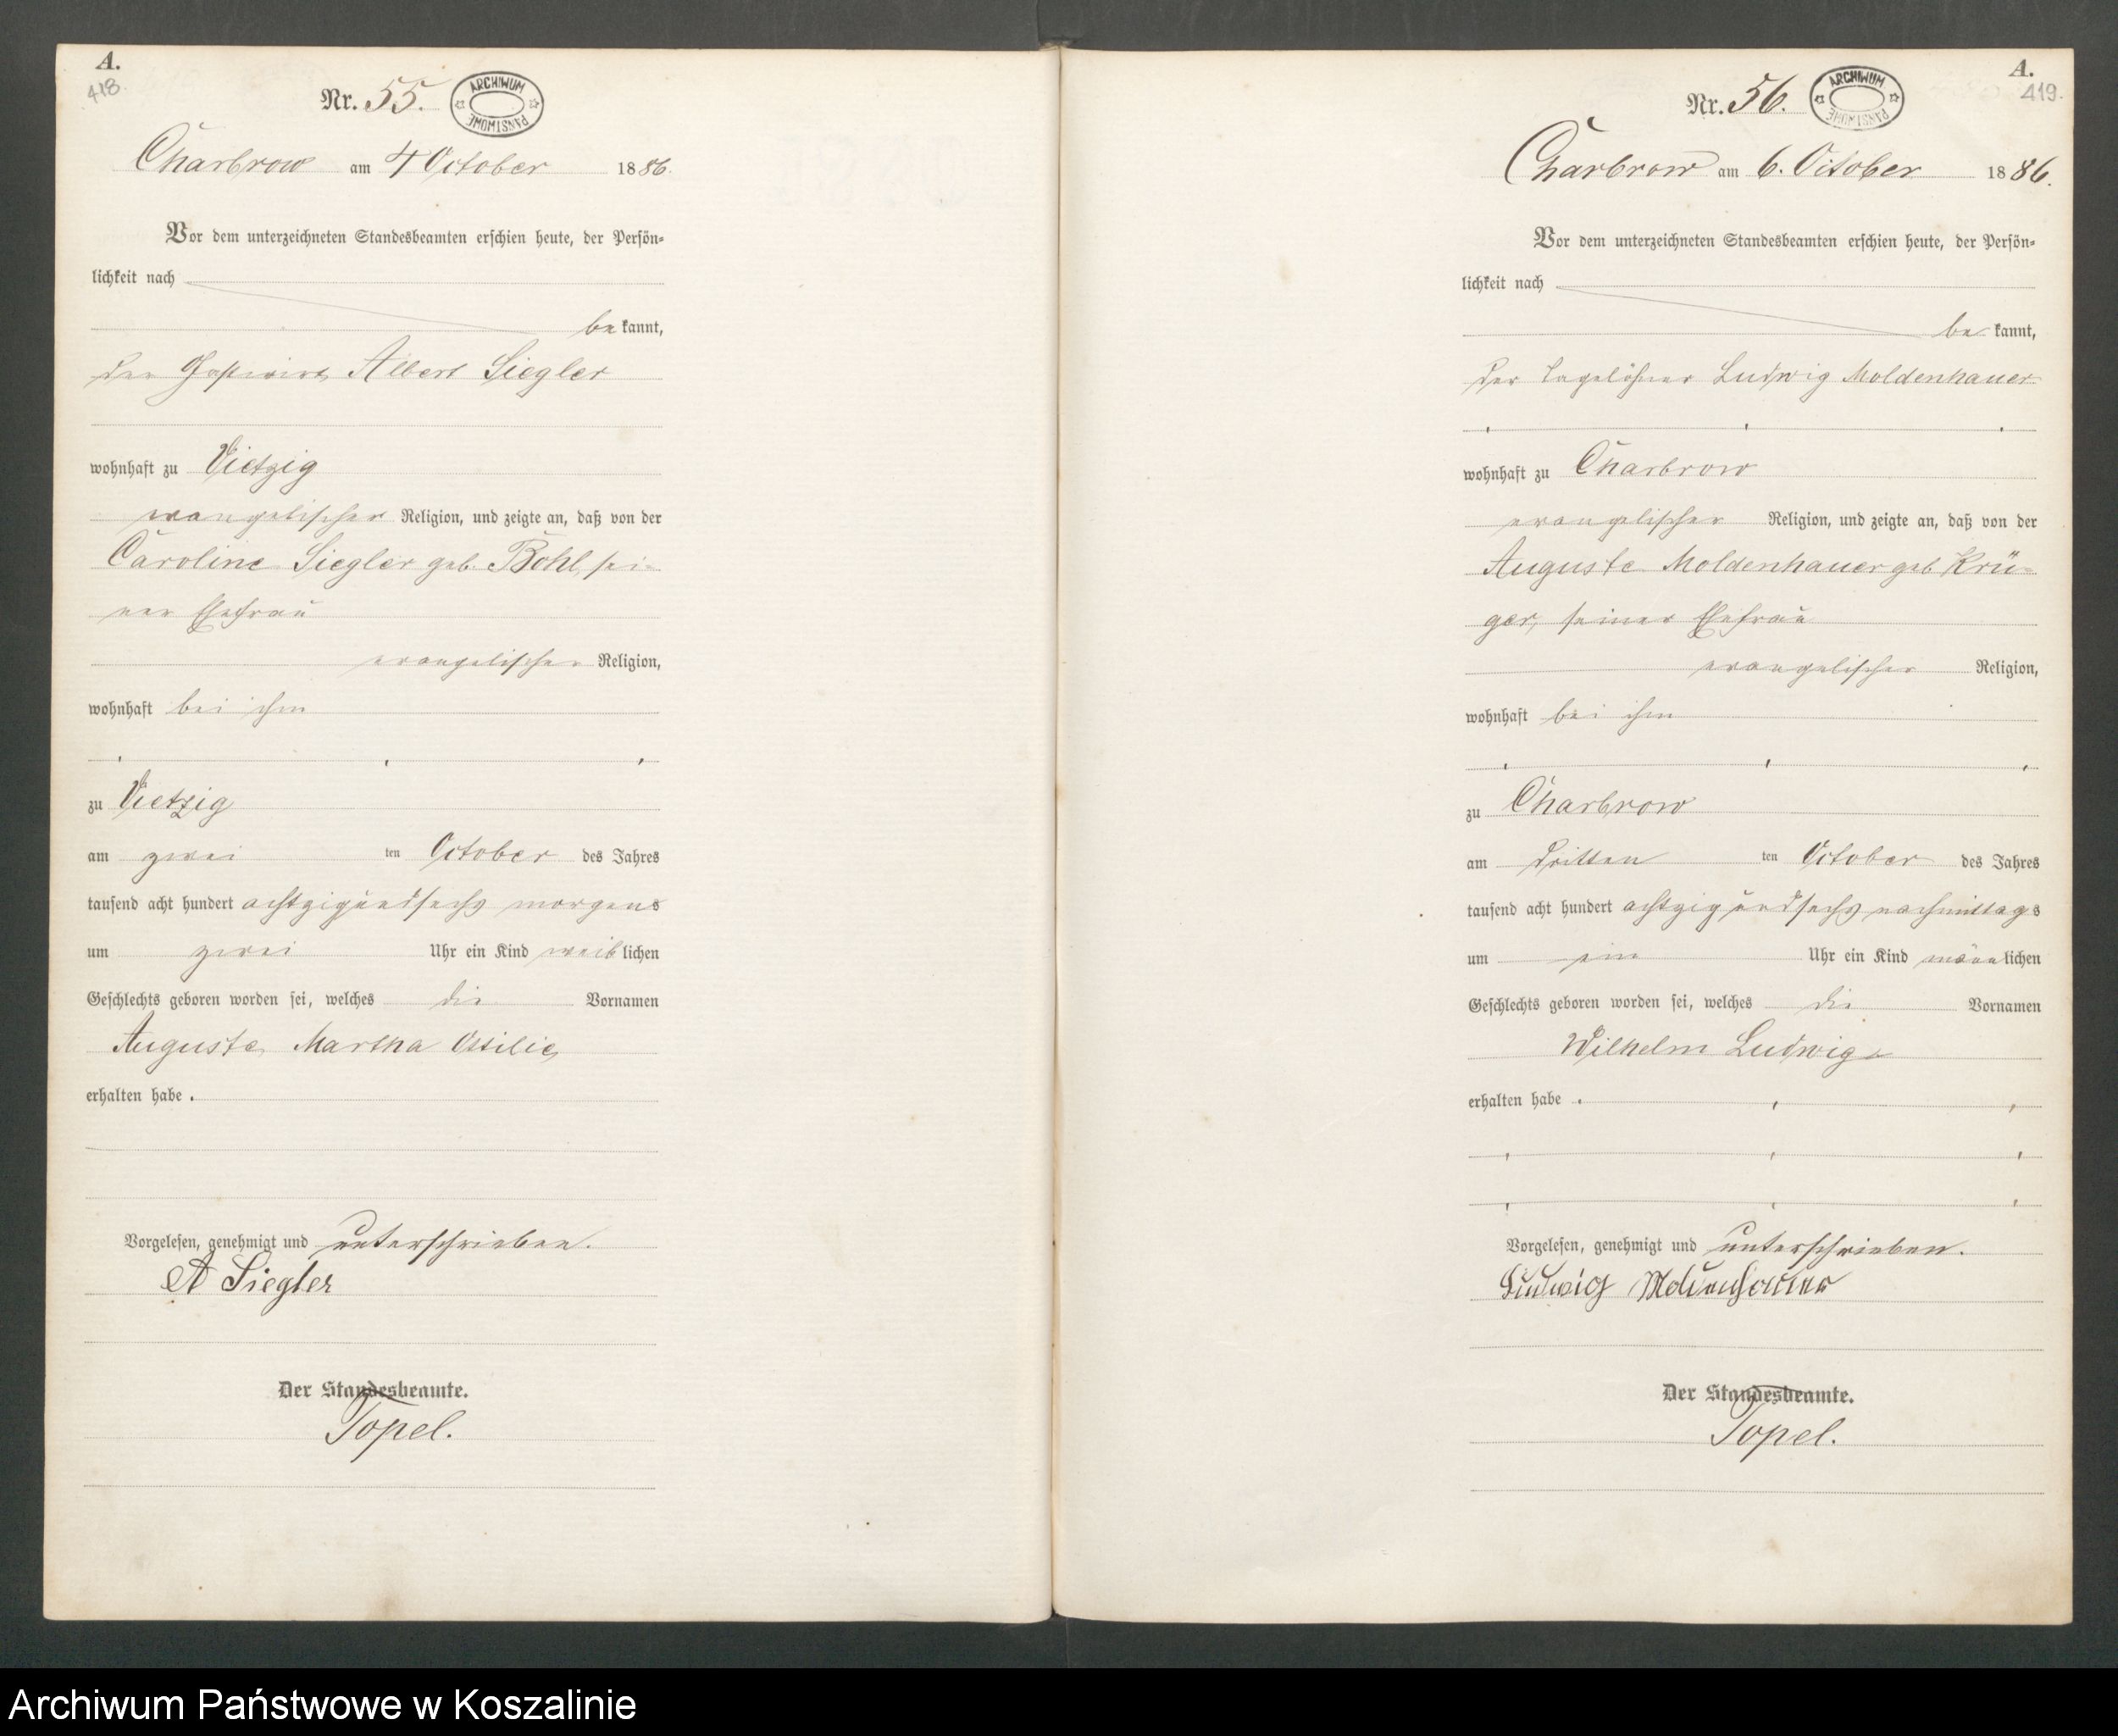 A.
418.
Nr. 55.
ARCHIWUM PAŃSTWOWE
Charbrow am 4 October 1886.
Vor dem unterzeichneten Standesbeamten erschien heute, der Persön-
lichkeit nach
be kannt,
der Gastwirt Albert Siegler
wohnhaft zu Vietzig
evangelischer Religion, und zeigte an, daß von der
Caroline Siegler geb. Bohl, sei-
ner Ehefrau
evangelischer Religion,
wohnhaft bei ihm
zu Vietzig
am zwei ten October des Jahres
tausend acht hundert achtzigundsechs morgens
um zwei Uhr ein Kind weib lichen
Geschlechts geboren worden sei, welches die Vornamen
Auguste Martha Ottilie
erhalten habe.
Vorgelesen, genehmigt und unterschrieben.
A Siegler
Der Standesbeamte.
Topel.
A.
419.
Nr. 56.
ARCHIWUM PAŃSTWOWE
Charbrow am 6. October 1886.
Vor dem unterzeichneten Standesbeamten erschien heute, der Persön-
lichkeit nach
be kannt,
der Tagelöhner Ludwig Moldenhauer
wohnhaft zu Charbrow
evangelischer Religion, und zeigte an, daß von der
Auguste Moldenhauer geb Krü-
ger, seiner Ehefrau
evangelischer Religion,
wohnhaft bei ihm
zu Charbrow
am dritten ten October des Jahres
tausend acht hundert achtzigundsechs nachmittags
um ein Uhr ein Kind männ lichen
Geschlechts geboren worden sei, welches die Vornamen
Wilhelm Ludwig
erhalten habe.
Vorgelesen, genehmigt und unterschrieben.
Ludwig Moldenhauer
Der Standesbeamte.
Topel.
Archiwum Państwowe w Koszalinie